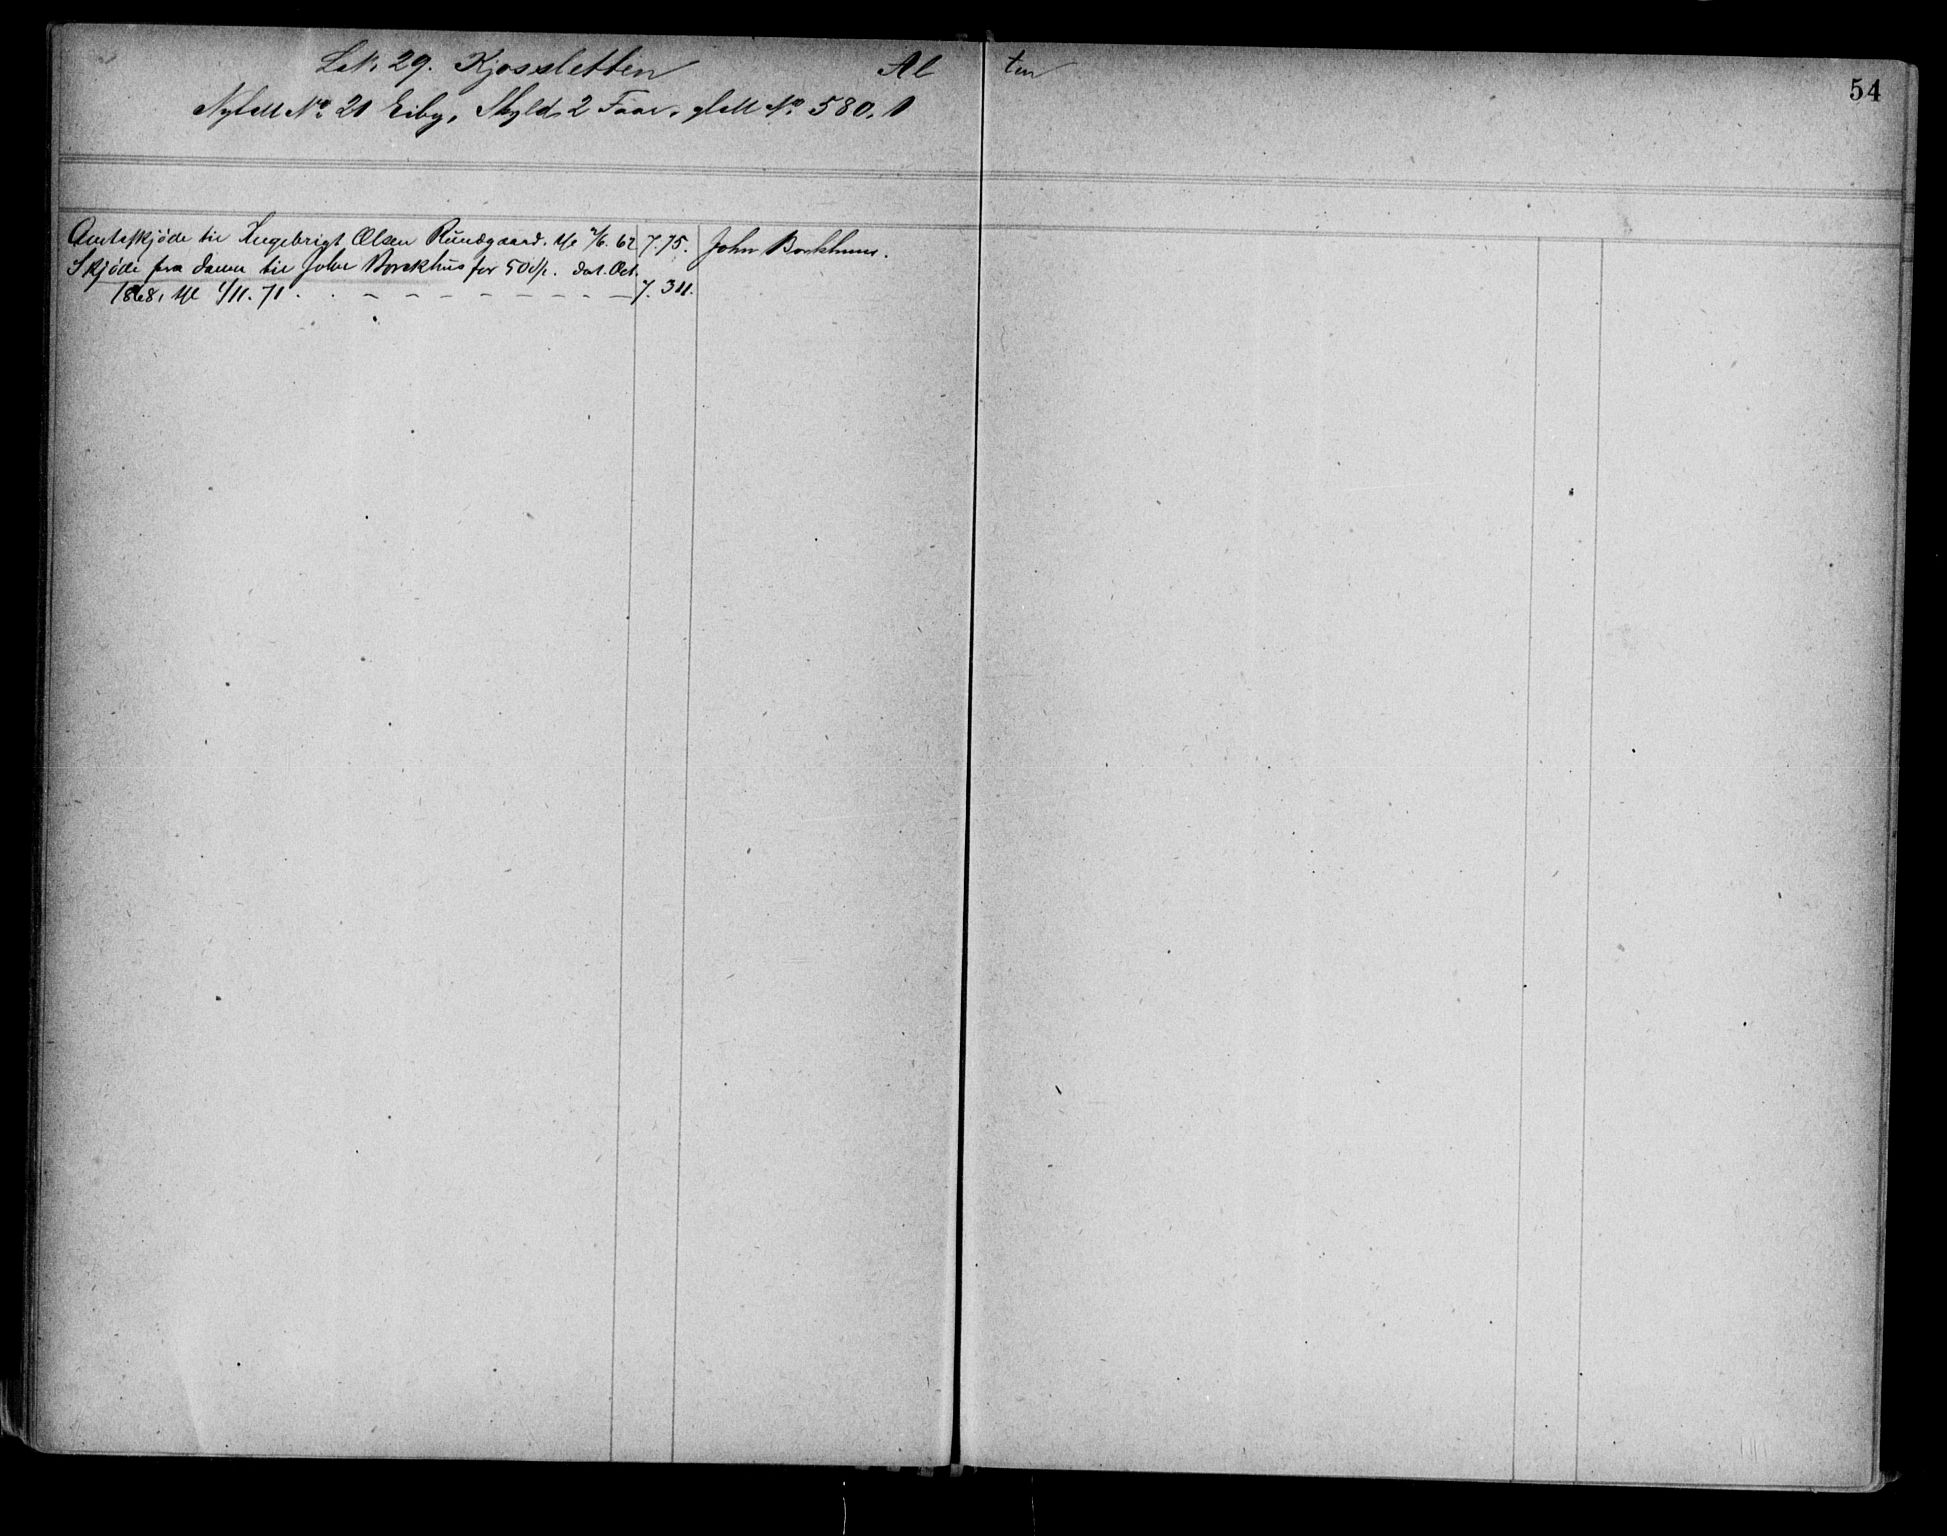 Lak. 29. Kjosssletten Alten
54
Matr No 21 Eiby, Skyld 2 Faar, gl No 580.
Amtsskjøde til Ingebrigt Olsen Rundgaard. tgl 2/6. 62 7.75. John Borkhuus.
Skjøde fra denne til John Borckhus for 50 dat. Oct.
1868, tgl 1/11. 71. 7. 311.